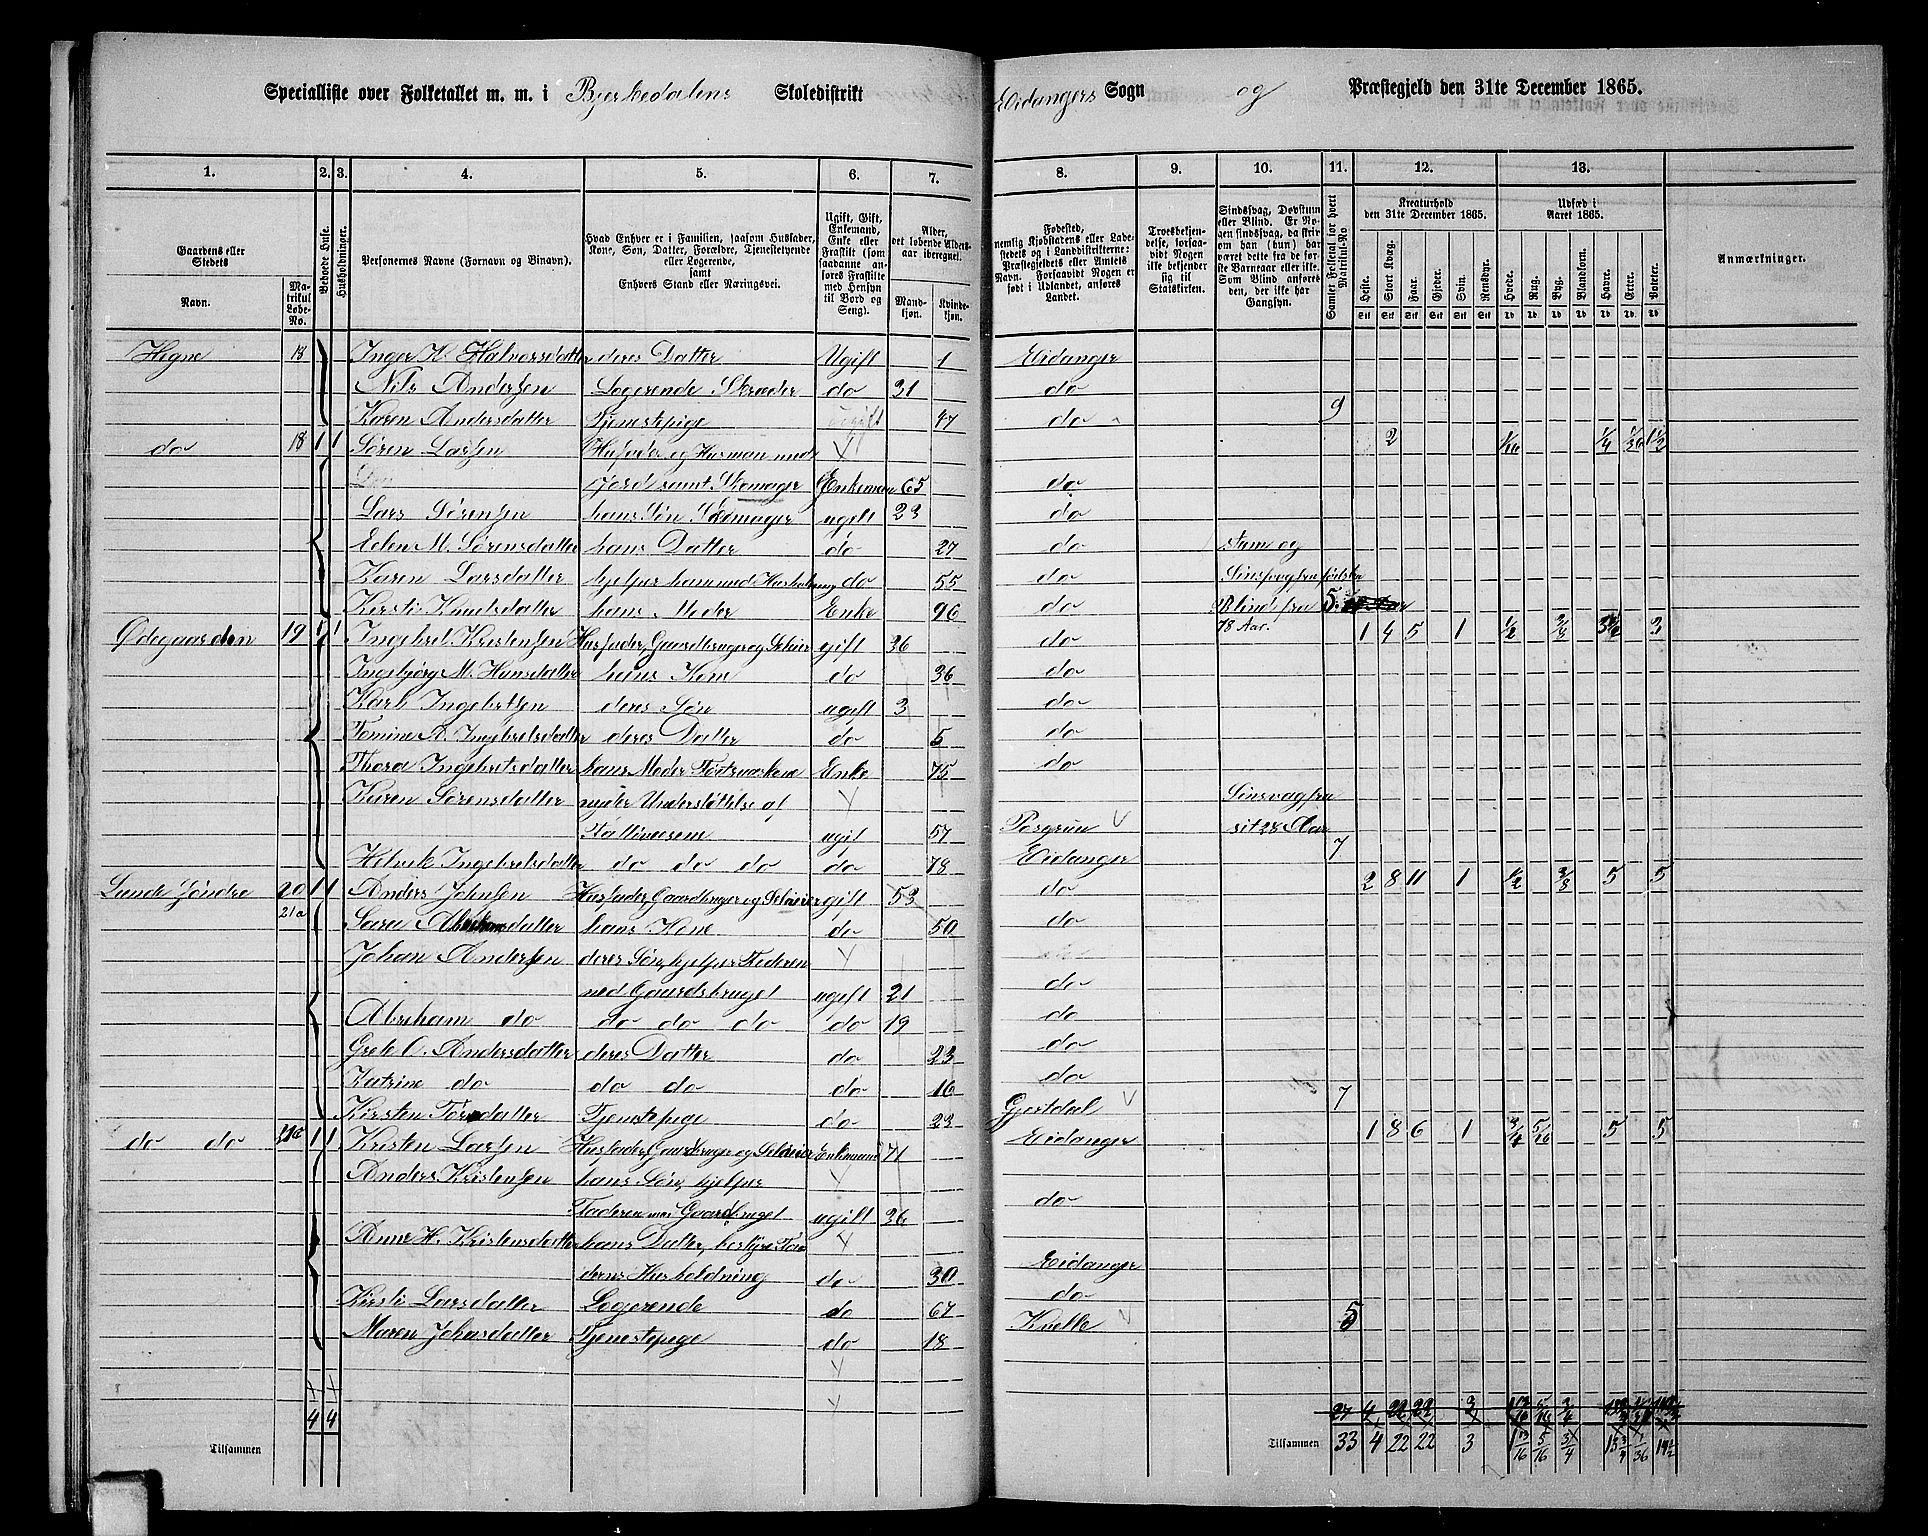 Specialliste over Folketallet m. m. i Bjerkedalens Skoledistrikt Eidangers Sogn og Præstegjeld den 31te December 1865.
1. 2. 3. 4. 5. 6. 7. 8. 9. 10. 11. 12. 13.
Gaardens eller Stedets
Navn.
Matrikul Løbe-No.
Beboede Huse.
Husholdninger.
Personernes Navne (Fornavn og Binavn).
Hvad Enhver er i Familien, saasom Husfader, Kone, Søn, Datter, Forældre, Tjenestetyende eller Logerende, samt Enhvers Stand eller Næringsvei.
Ugift, Gift, Enkemand, Enke eller Fraskilt (som saadanne anføres Fraskilte med Hensyn til Bord og Seng).
Alder, det løbende Aldersaar iberegnet.
Mandkjøn. Kvindekjøn.
Fødested, nemlig Kjøbstadens eller Ladestedets og i Landdistrikterne: Præstegjeldets eller Amtets Navn. Forsaavidt Nogen er født i Udlandet, anføres Landet.
Troesbekjendelse, forsaavidt Nogen ikke bekjender sig til Statskirken.
Sindssvag, Døvstum eller Blind. Er Nogen sindssvag, da skrives om han (hun) har været dette fra de første Barneaar eller ikke. Som Blind anføres den, der ikke har Gangsyn.
Samlet Folketal for hvert Matrikul-No
Kreaturhold den 31te December 1865.
Heste. Stort Kvæg. Faar. Gjeder. Svin. Rensdyr.
Udsæd i Aaret 1865.
Hvede. Rug. Byg. Blandkorn. Havre. Erter. Poteter.
Anmærkninger.
Hegne 18 Inger H. Halvorsdatter deres Datter Ugift 1 Eidanger
Nils Andersen Logerende Skræder do 31 do
Karen Andersdatter Tjenestepige ugift 47 do 9
do 18 1 1 Søren Larsen Husfader og Husman med 2 1/16 1/4 1/36 1 1/2
Jord samt Skomager Enkeman 65 do
Lars Sørensen hans Søn Skomager ugift 23 do
Eden M. Sørensdatter hans Datter do 27 do Stum og
Karen Larsdatter hjelper ham med Husholdning do 55 do Sinsvag fra fødslen
Kirsti Knutsdatter hans Moder Enke 96 do Blind fra 5
78 Aar.
Ødegaarden 19 1 1 Ingebret Kristensen Husfader, Gaardbruger og Selveier gift 36 do 1 4 5 1 1/2 3/8 3 1/2 3
Ingebjørg M. Hansdatter hans Kone do 36 do
Karl Ingebretsen deres Søn ugift 3 do
Tomine A. Ingebretsdatter deres Datter do 5 do
Thora Ingebretsdatter hans Moder Enke 75 do
Karen Sørensdatter nyder Understøttelse af Sinsvag fra
Fattivæsene ugift 57 Porgrun sit 28 Aar
Helvik Ingebretsdatter do do do do 78 Eidanger 7
Lunde Søndre 20 1 1 Anders Johnsen Husfader Gaardbruger og Selveier gift 53 do 2 8 11 1 1/2 3/8 5 5
21a Sara Abrahamsdatter hans Kone do 50 do
Johan Andersen deres Søn, hjelper Faderen
med Gaardsbruget ugift 21 do
Abraham do do do do do 19 do
Grete O. Andersdatter deres Datter do 23 do
Katrine do do do do 16 do
Kirsten Torsdatter Tjenestepige do 23 Gjestdal 7
do do 21c 1 1 Kristen Larsen Husfader Gaardbruger og Selveier Enkemand 71 Eidanger 1 8 6 1 3/4 5/16 5 5
Anders Kristensen hans Søn, hjelper
Faderen med Gaardbruget ugift 36 do
Anne H. Kristensdatter hans Datter, bestyre Fa-
derns Husholdning do 30 Eidanger
Kirsti Larsdatter Logerende do 67 do
Maren Johasdatter Tjenestepige do 18 Kvelle 5
4 4
Tilsammen
Tilsammen 33 4 22 22 3 1 13/16 5/16 3/4 13 3/4 1/36 14 1/2